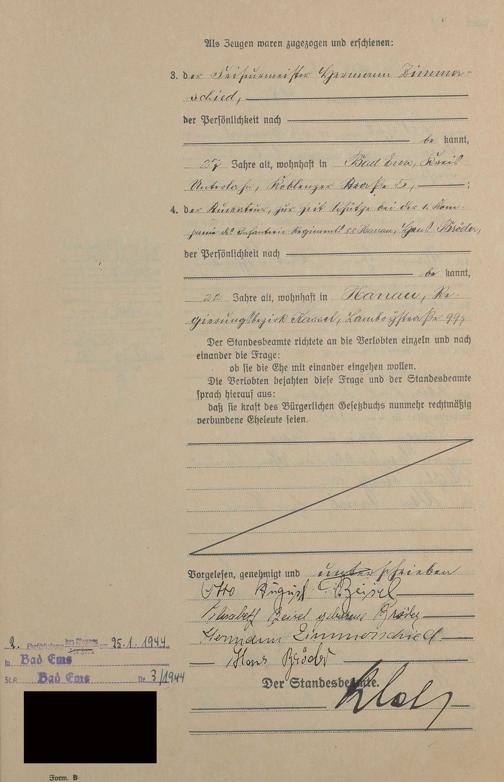 Als Zeugen waren zugezogen und erschienen:
3. der Friseurmeister Hermann Zimmer-
schied,
der Persönlichkeit nach
be kannt,
27 Jahre alt, wohnhaft in Bad Ems, Kreis
Unterlahn, Koblenzer Straße
4. der zur Zeit Schütze bei der 1. Kom-
panie des Infanterie Regiments Hanau, Hans Bröder,
der Persönlichkeit nach
be kannt,
Jahre alt, wohnhaft in Hanau, Re-
gierungsbezirk Kassel, Lamboystraße
Der Standesbeamte richtete an die Verlobten einzeln und nach
einander die Frage:
ob sie die Ehe mit einander eingehen wollen.
Die Verlobten bejahten diese Frage und der Standesbeamte
sprach hierauf aus:
daß sie kraft des Bürgerlichen Gesetzbuchs nunmehr rechtmäßig
verbundene Eheleute seien.
Vorgelesen, genehmigt und unterschrieben
Otto August Beisel
Elisabeth Beisel geborene Bröder
Hermann Zimmerschied
Hans Bröder
Der Standesbeamte.
25.1.1944
in Bad Ems
St.A Bad Ems Nr. 3/1944
Form. B